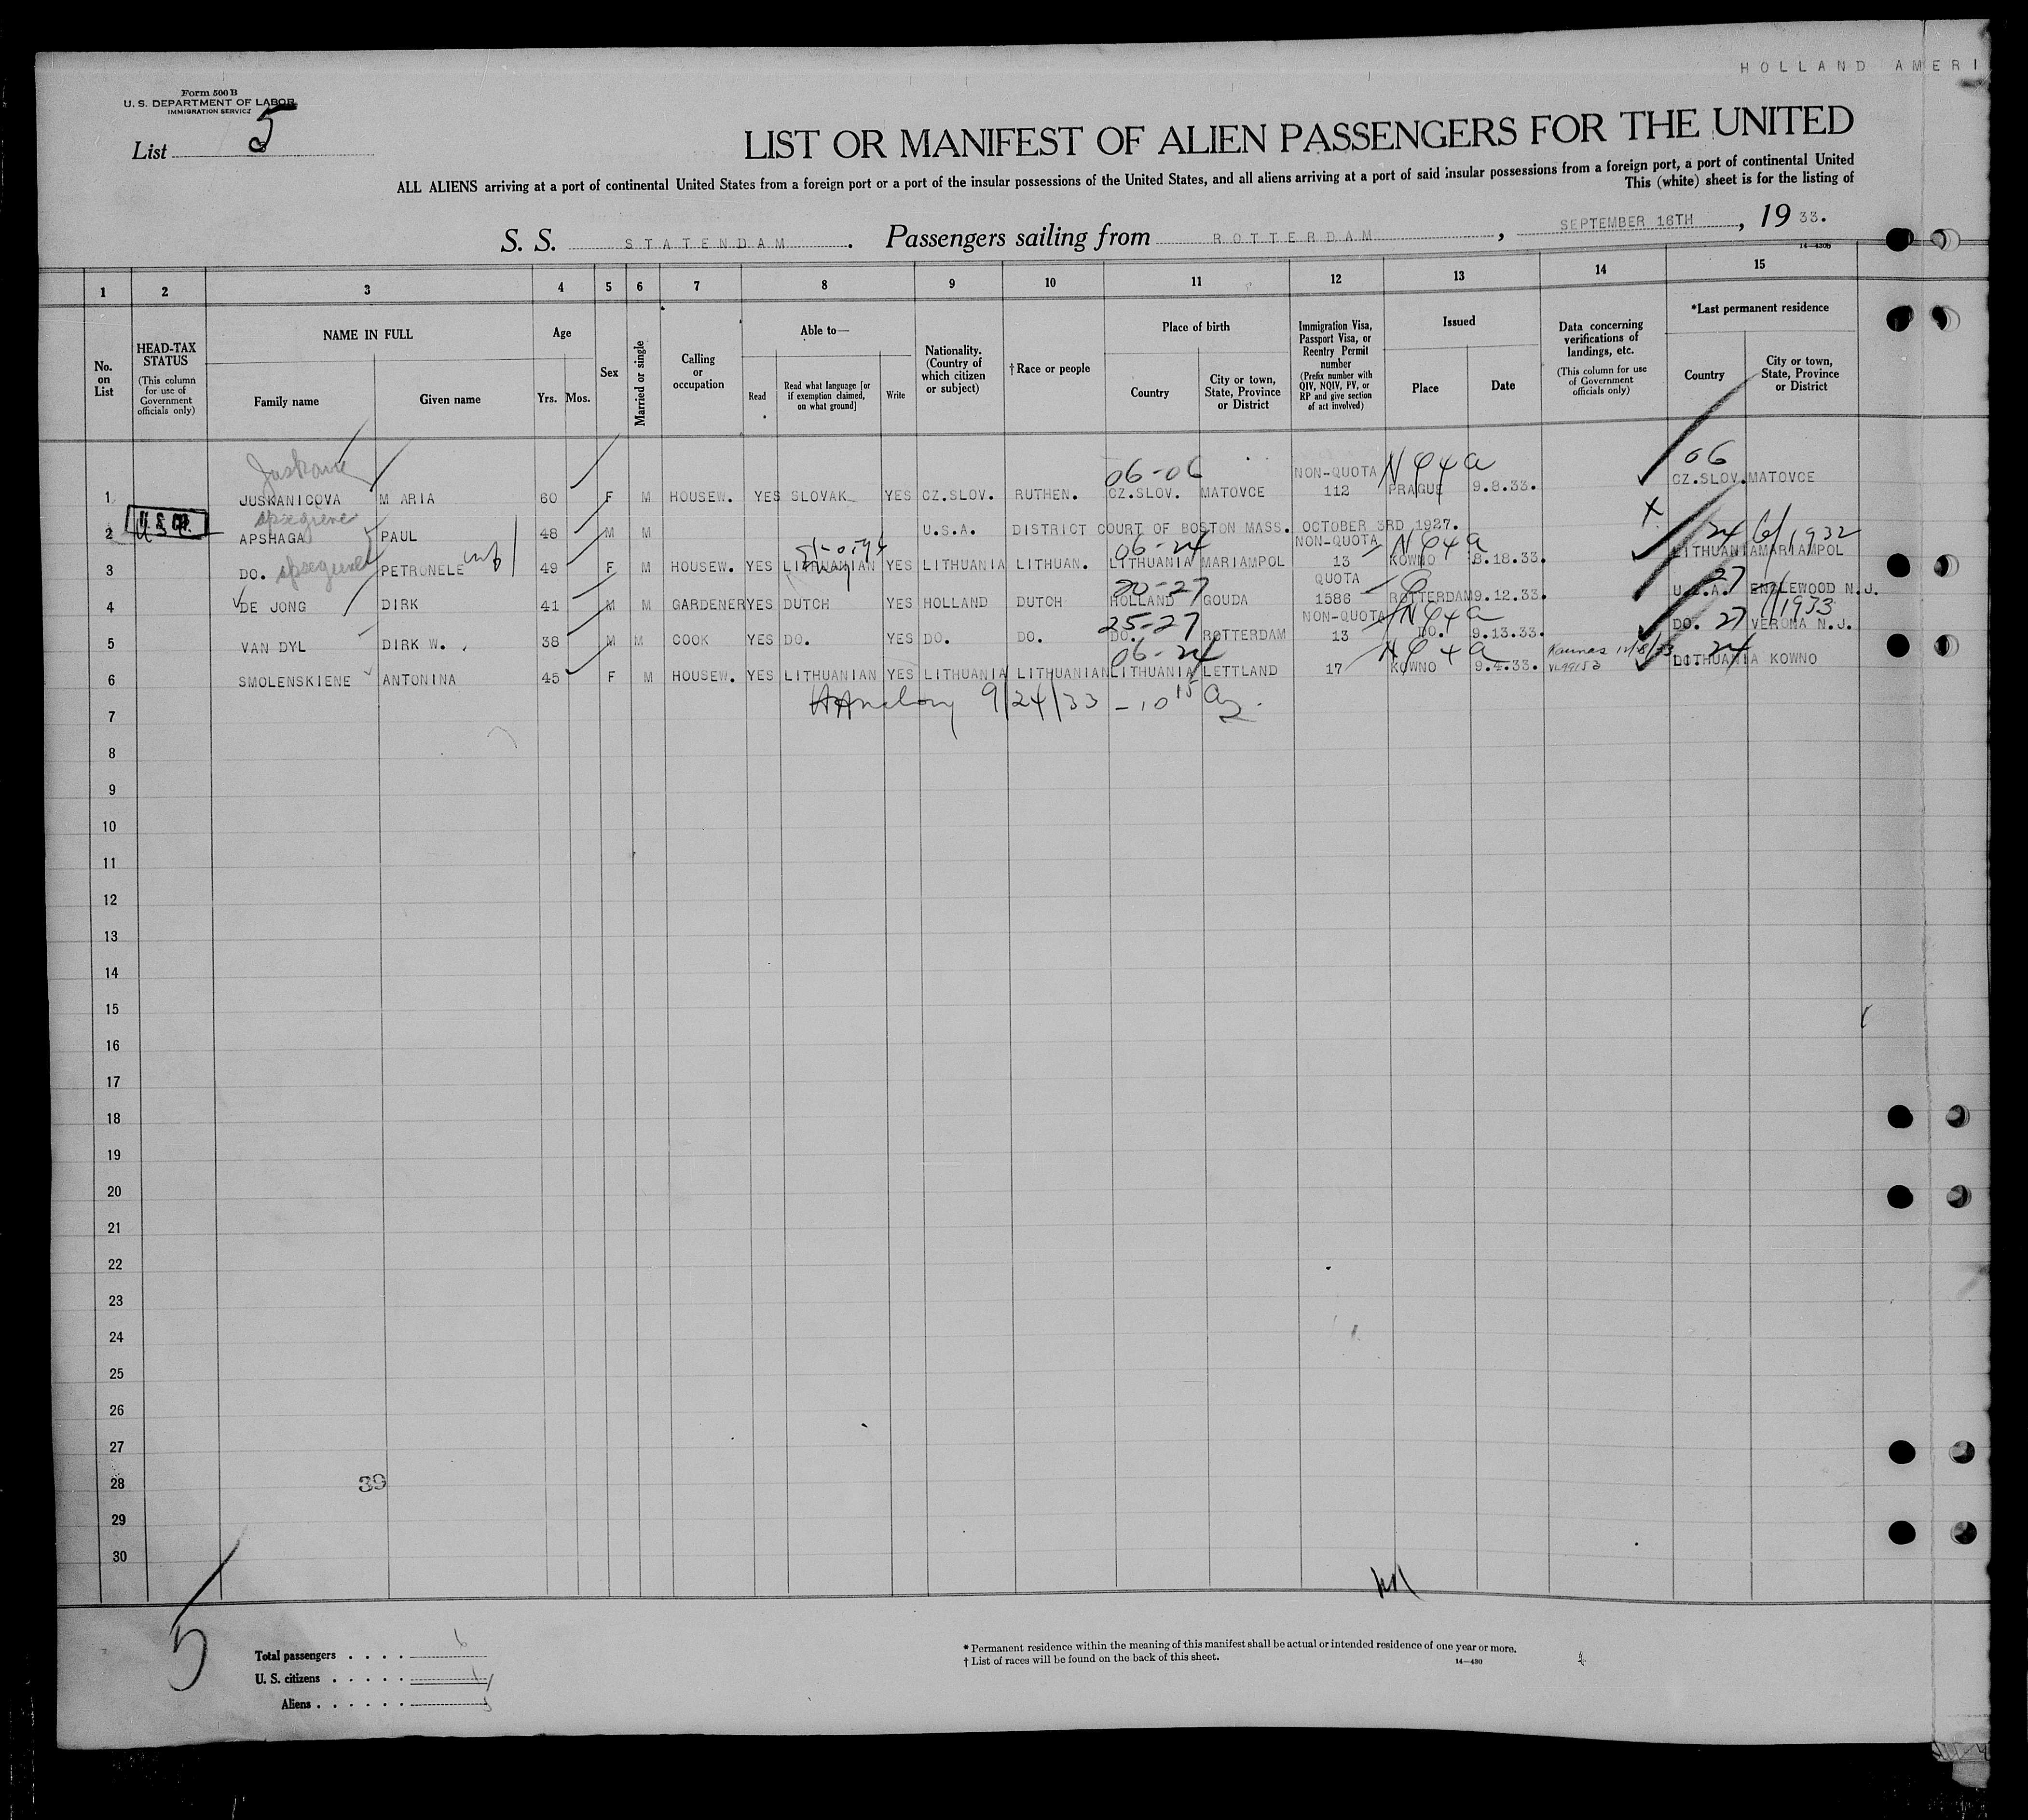 HOLLAND AMERI
Form 500 B
U. S. DEPARTMENT OF LABOR
IMMIGRATION SERVICE
List 5
LIST OR MANIFEST OF ALIEN PASSENGERS FOR THE UNITED
ALL ALIENS arriving at a port of continental United States from a foreign port or a port of the insular possessions of the United States, and all aliens arriving at a port of said insular possessions from a foreign port, a port of continental United
This (white) sheet is for the listing of
S. S. STATENDAM. Passengers sailing from ROTTERDAM, SEPTEMBER 16TH, 19 33.
14—430b
1 2 3 4 5 6 7 8 9 10 11 12 13 14 15
No. on List
HEAD-TAX STATUS (This column for use of Government officials only)
NAME IN FULL
Family name Given name
Age
Yrs. Mos.
Sex
Married or single
Calling or occupation
Able to—
Read Read what language [or if exemption claimed, on what ground] Write
Nationality. (Country of which citizen or subject)
†Race or people
Place of birth
Country City or town, State, Province or District
Immigration Visa, Passport Visa, or Reentry Permit number (Prefix number with QIV, NQIV, PV, or RP and give section of act involved)
Issued
Place Date
Data concerning verifications of landings, etc. (This column for use of Government officials only)
*Last permanent residence
Country City or town, State, Province or District
06-06 NON-QUOTA N94a 06
1 JUSKANICOVA MARIA 60 F M HOUSEW. YES SLOVAK YES CZ.SLOV. RUTHEN. CZ.SLOV. MATOVCE 112 PRAGUE 9.8.33. CZ.SLOV. MATOVCE
2 APSHAGA PAUL 48 M M U.S.A. DISTRICT COURT OF BOSTON MASS. OCTOBER 3RD 1927. X
06-24 NON-QUOTA N94a 24 1932
3 DO. PETRONELE 49 F M HOUSEW. YES LITHUANIAN YES LITHUANIA LITHUAN. LITHUANIA MARIAMPOL 13 KOWNO 8.18.33. LITHUANIA MARIAMPOL
QUOTA 27
4 DE JONG DIRK 41 M M GARDENER YES DUTCH YES HOLLAND DUTCH HOLLAND GOUDA 1586 ROTTERDAM 9.12.33. U.S.A. ENGLEWOOD N.J.
25-27 NON-QUOTA N94a 27 1933
5 VAN DYL DIRK W. 38 M M COOK YES DO. YES DO. DO. DO. ROTTERDAM 13 DO. 9.13.33. DO. VERONA N.J.
06-24 N94a 24
6 SMOLENSKIENE ANTONINA 45 F M HOUSEW. YES LITHUANIAN YES LITHUANIA LITHUANIAN LITHUANIA LETTLAND 17 KOWNO 9.4.33. Kaunas LITHUANIA KOWNO
7 9/24/33 - 10 15
8
9
10
11
12
13
14
15
16
17
18
19
20
21
22
23
24
25
26
27
28 39
29
30
5
Total passengers . . . . 6
U. S. citizens . . . . . 1
Aliens . . . . . . 5
* Permanent residence within the meaning of this manifest shall be actual or intended residence of one year or more.
† List of races will be found on the back of this sheet.
14—430